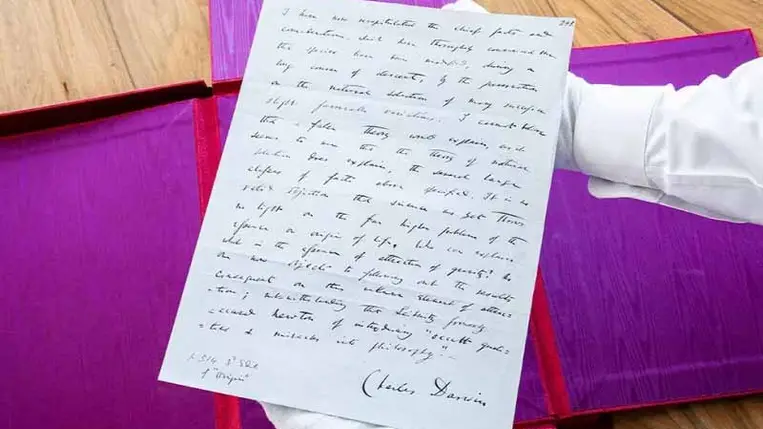 I have now recapitulated the chief facts and
considerations, which have thoroughly convinced me
that species have been modified, during a
long course of descent, by the preservation
or the natural selection of many successive
slight favourable variations. I cannot believe
that a false theory would explain, as it
seems to me that the theory of natural
selection does explain, the several large
classes of facts above specified. It is no
valid objection that science as yet throws
no light on the far higher problem of the
essence or origin of life. Who can explain
what is the essence of attraction of gravity? No
one now objects to following out the results
consequent on this unknown element of attrac-
-tion; notwithstanding that Leibnitz formerly
accused Newton of introducing "occult quali-
-ties & miracles into philosophy".—
of "Origin"
Charles Darwin